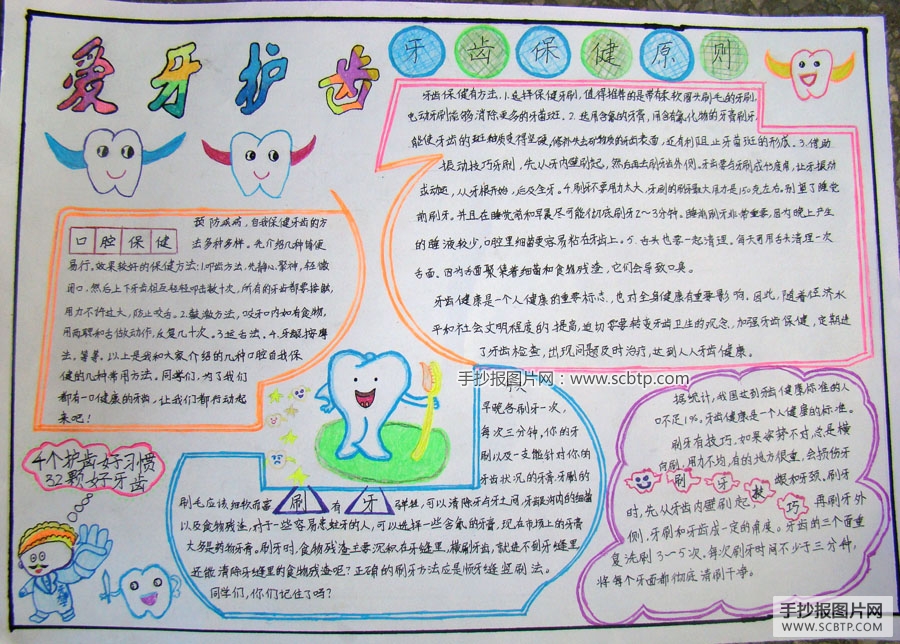 爱牙护齿
牙齿保健原则
牙齿保健有方法.1.选择保健牙刷,值得推荐的是带有柔软圆头刷毛的牙刷,
电动牙刷能够消除更多的牙菌斑。2.选用含氟的牙膏,用含有氟化物的牙膏刷牙,
3.借助
振动技巧牙刷,先从牙内壁刷起,然后再去刷牙齿外侧。
从牙根开始,后及全牙。4.刷牙不要用力太大,牙刷的刷牙最大用力是150克左右。别算了睡觉
前刷牙。并且在睡觉前和早晨尽可能彻底刷牙2~3分钟。睡前刷牙非常重要,因为晚上产生
的唾液较少,口腔里细菌更容易粘在牙齿上。5.舌头也要一起清理。每天可用舌头清理一次
舌面。因为舌面聚集着细菌和食物残渣,它们会导致口臭。
牙齿健康是一个人健康的重要标志,也对全身健康有重要影响。因此,随着经济水
平和社会文明程度的提高,迫切需要转变牙齿卫生的观念,加强牙齿保健,定期进
了牙齿检查,出现问题及时治疗,达到人人牙齿健康。
口腔保健
预防疾病,自我保健牙齿的方
法多种多样。先介绍几种简便
易行。效果较好的保健方法:1.叩齿方法.先静心聚神,轻微
闭口,然后上下牙齿相互轻轻叩击数十次,所有的牙齿都要接触,
用力不许过大,防止咬舌。2.鼓漱方法,咬牙口内如有食物,
用两腮和舌做动作,反复几十次。3.运舌法。4.牙龈按摩
法。等等。以上是我和大家介绍的几种口腔自我保
健的几种常用方法。同学们,为了我们
都有一口健康的牙齿,让我们都行动起
来吧!
手抄报图片网:www.scbtp.com
4个护齿好习惯
32颗好牙齿
早晚各刷牙一次,
每次三分钟,你的牙
刷以及一支能针对你的
牙齿状况的牙膏.牙刷的
刷毛应该细软而富
刷牙
有
弹性,可以清除牙与牙之间,
以及食物残渣.对于一些容易患蛀牙的人,可以选择一些含氟的牙膏,现在市场上的牙膏
大多是药物牙膏。刷牙时,食物残渣主要沉积在牙缝里,横刷牙齿,就进不到牙缝里
还能清除牙缝里的食物残渣呢?正确的刷牙方法应是顺牙缝竖刷法。
同学们,你们记住了吗?
据统计,我国达到牙齿健康标准的人
口不足1%。牙齿健康是一个人健康的标准。
刷牙有技巧.如果姿势不对,总是横
向刷,用力不均,有的地方很重,会损伤牙
龈和牙颈、刷牙
刷牙技巧
时,先从牙齿内壁刷起,
再刷牙外
侧,牙刷和牙齿成一定的角度。牙齿的三个面重
复洗刷3~5次.每次刷牙时间不少于三分钟,
将每个牙面都彻底清刷干净。
手抄报图片网
WWW.SCBTP.COM